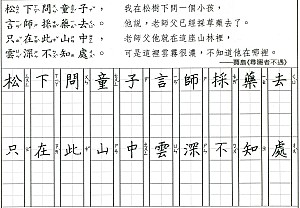 松下問童子,
言師採藥去。
只在此山中,
雲深不知處。
我在松樹下問一個小孩,
他說,老師父已經採草藥去了。
老師父他就在這座山林裡,
可是這裡雲霧很濃,不知道他在哪裡。
——賈島《尋隱者不遇》
松下問童子言師採藥去
只在此山中雲深不知處